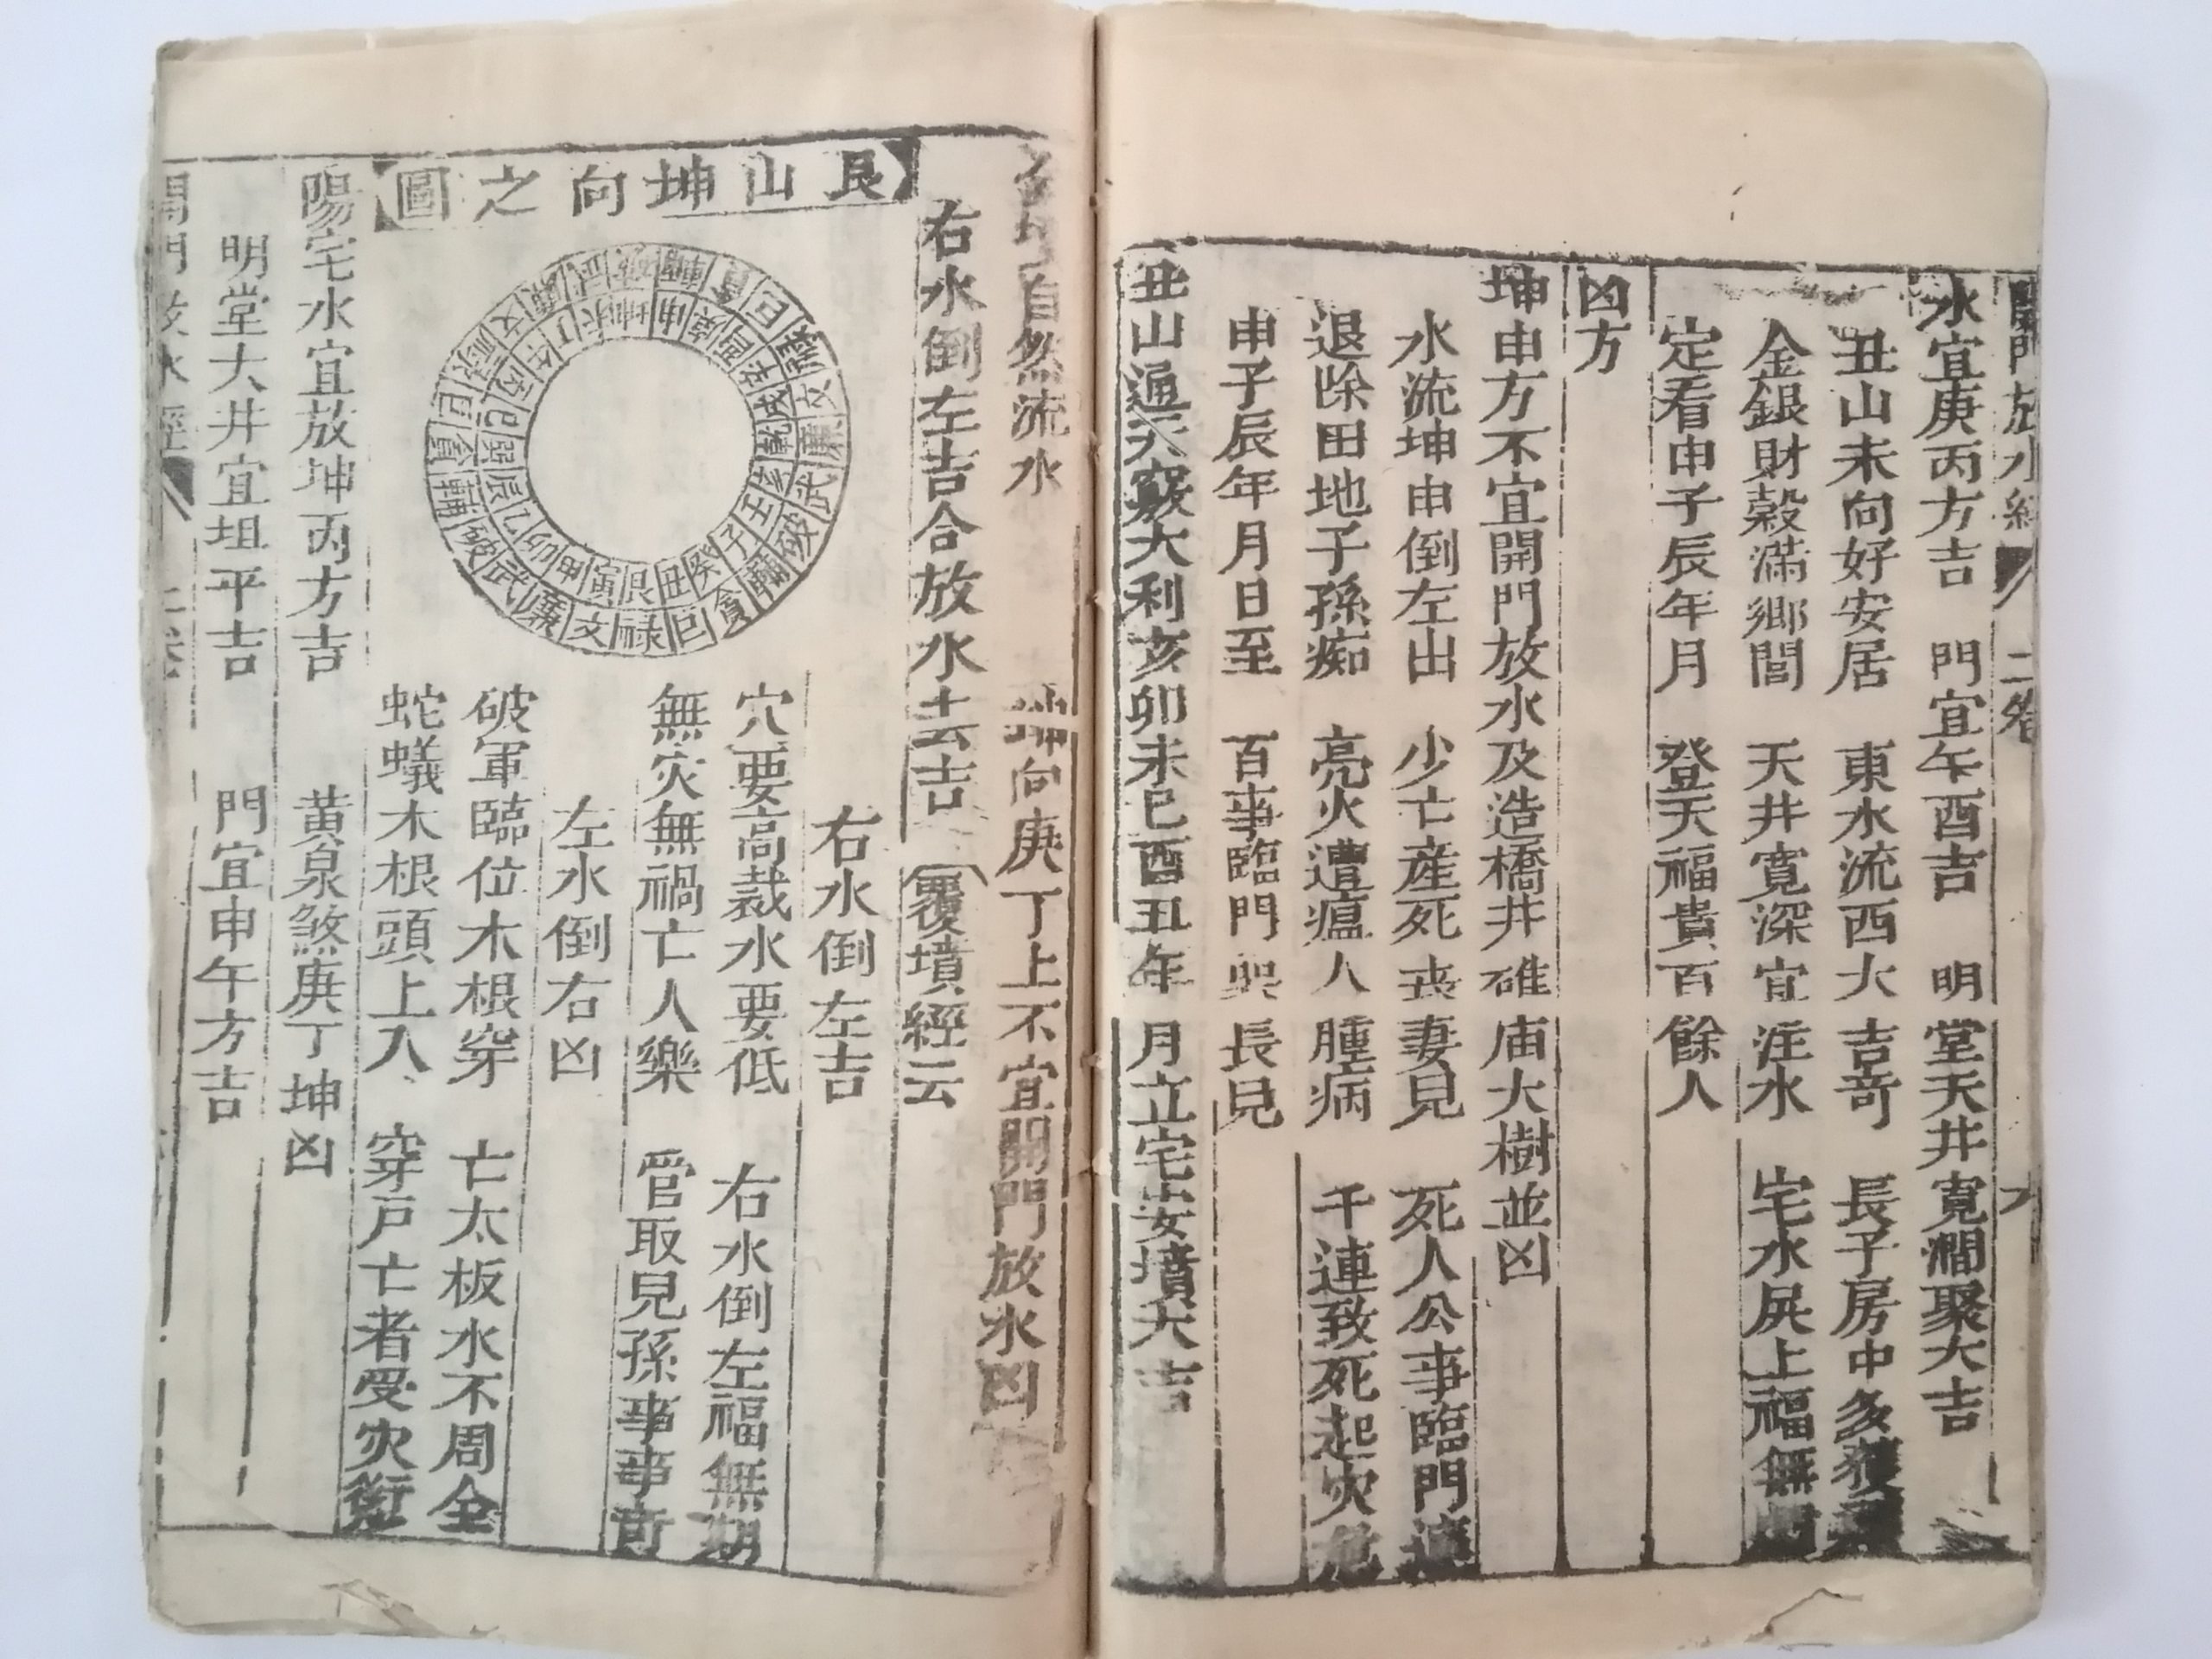 開門放水經 二卷
水宜庚丙方吉 門宜午酉吉 明堂天井寬濶聚大吉
丑山未向好安居 東水流西大吉竒 長子房中多獲
金銀財榖滿鄉閭 天井寬深宜注水 宅水屍上福無
定看申子辰年月 登天福貴百餘人
凶方
坤申方不宜開門放水及造橋井碓庙大樹並凶
水流坤申倒左出 少亡産死丧妻見 死人公事臨門
退除田地子孫痴 亮火遭瘟人腫病 千連致死起灾
申子辰年月日至 百事臨門 長見
丑山通天竅大利亥卯未巳酉丑年月立宅安墳大吉
自然流水 坤向庚丁上不宜開門放水凶
右水倒左吉合放水去吉 覆墳經云
艮山坤向之圖
巳 貪 輔 破 武 廉 文 祿 巳 貪 輔 破 武 廉 文 禄 巳 貪 輔 破 武 廉 文 祿
庚 酉 辛 戌 乾 亥 壬 子 癸 丑 艮 寅 甲 卯 乙 辰 巽 巳 丙 午 丁 未 坤 申
右水倒左吉
穴要高裁水要低 右水倒左福無期
無灾無禍亡人樂 管取見孫事事竒
左水倒右凶
破軍臨位木根穿 亡太板水不周全
蛇蟻木根頭上入 穿戸亡者受灾
陽宅水宜放坤丙方吉 黄泉煞庚丁坤凶
明堂大井宜坦平吉 門宜申午方吉
開門放水經 二卷